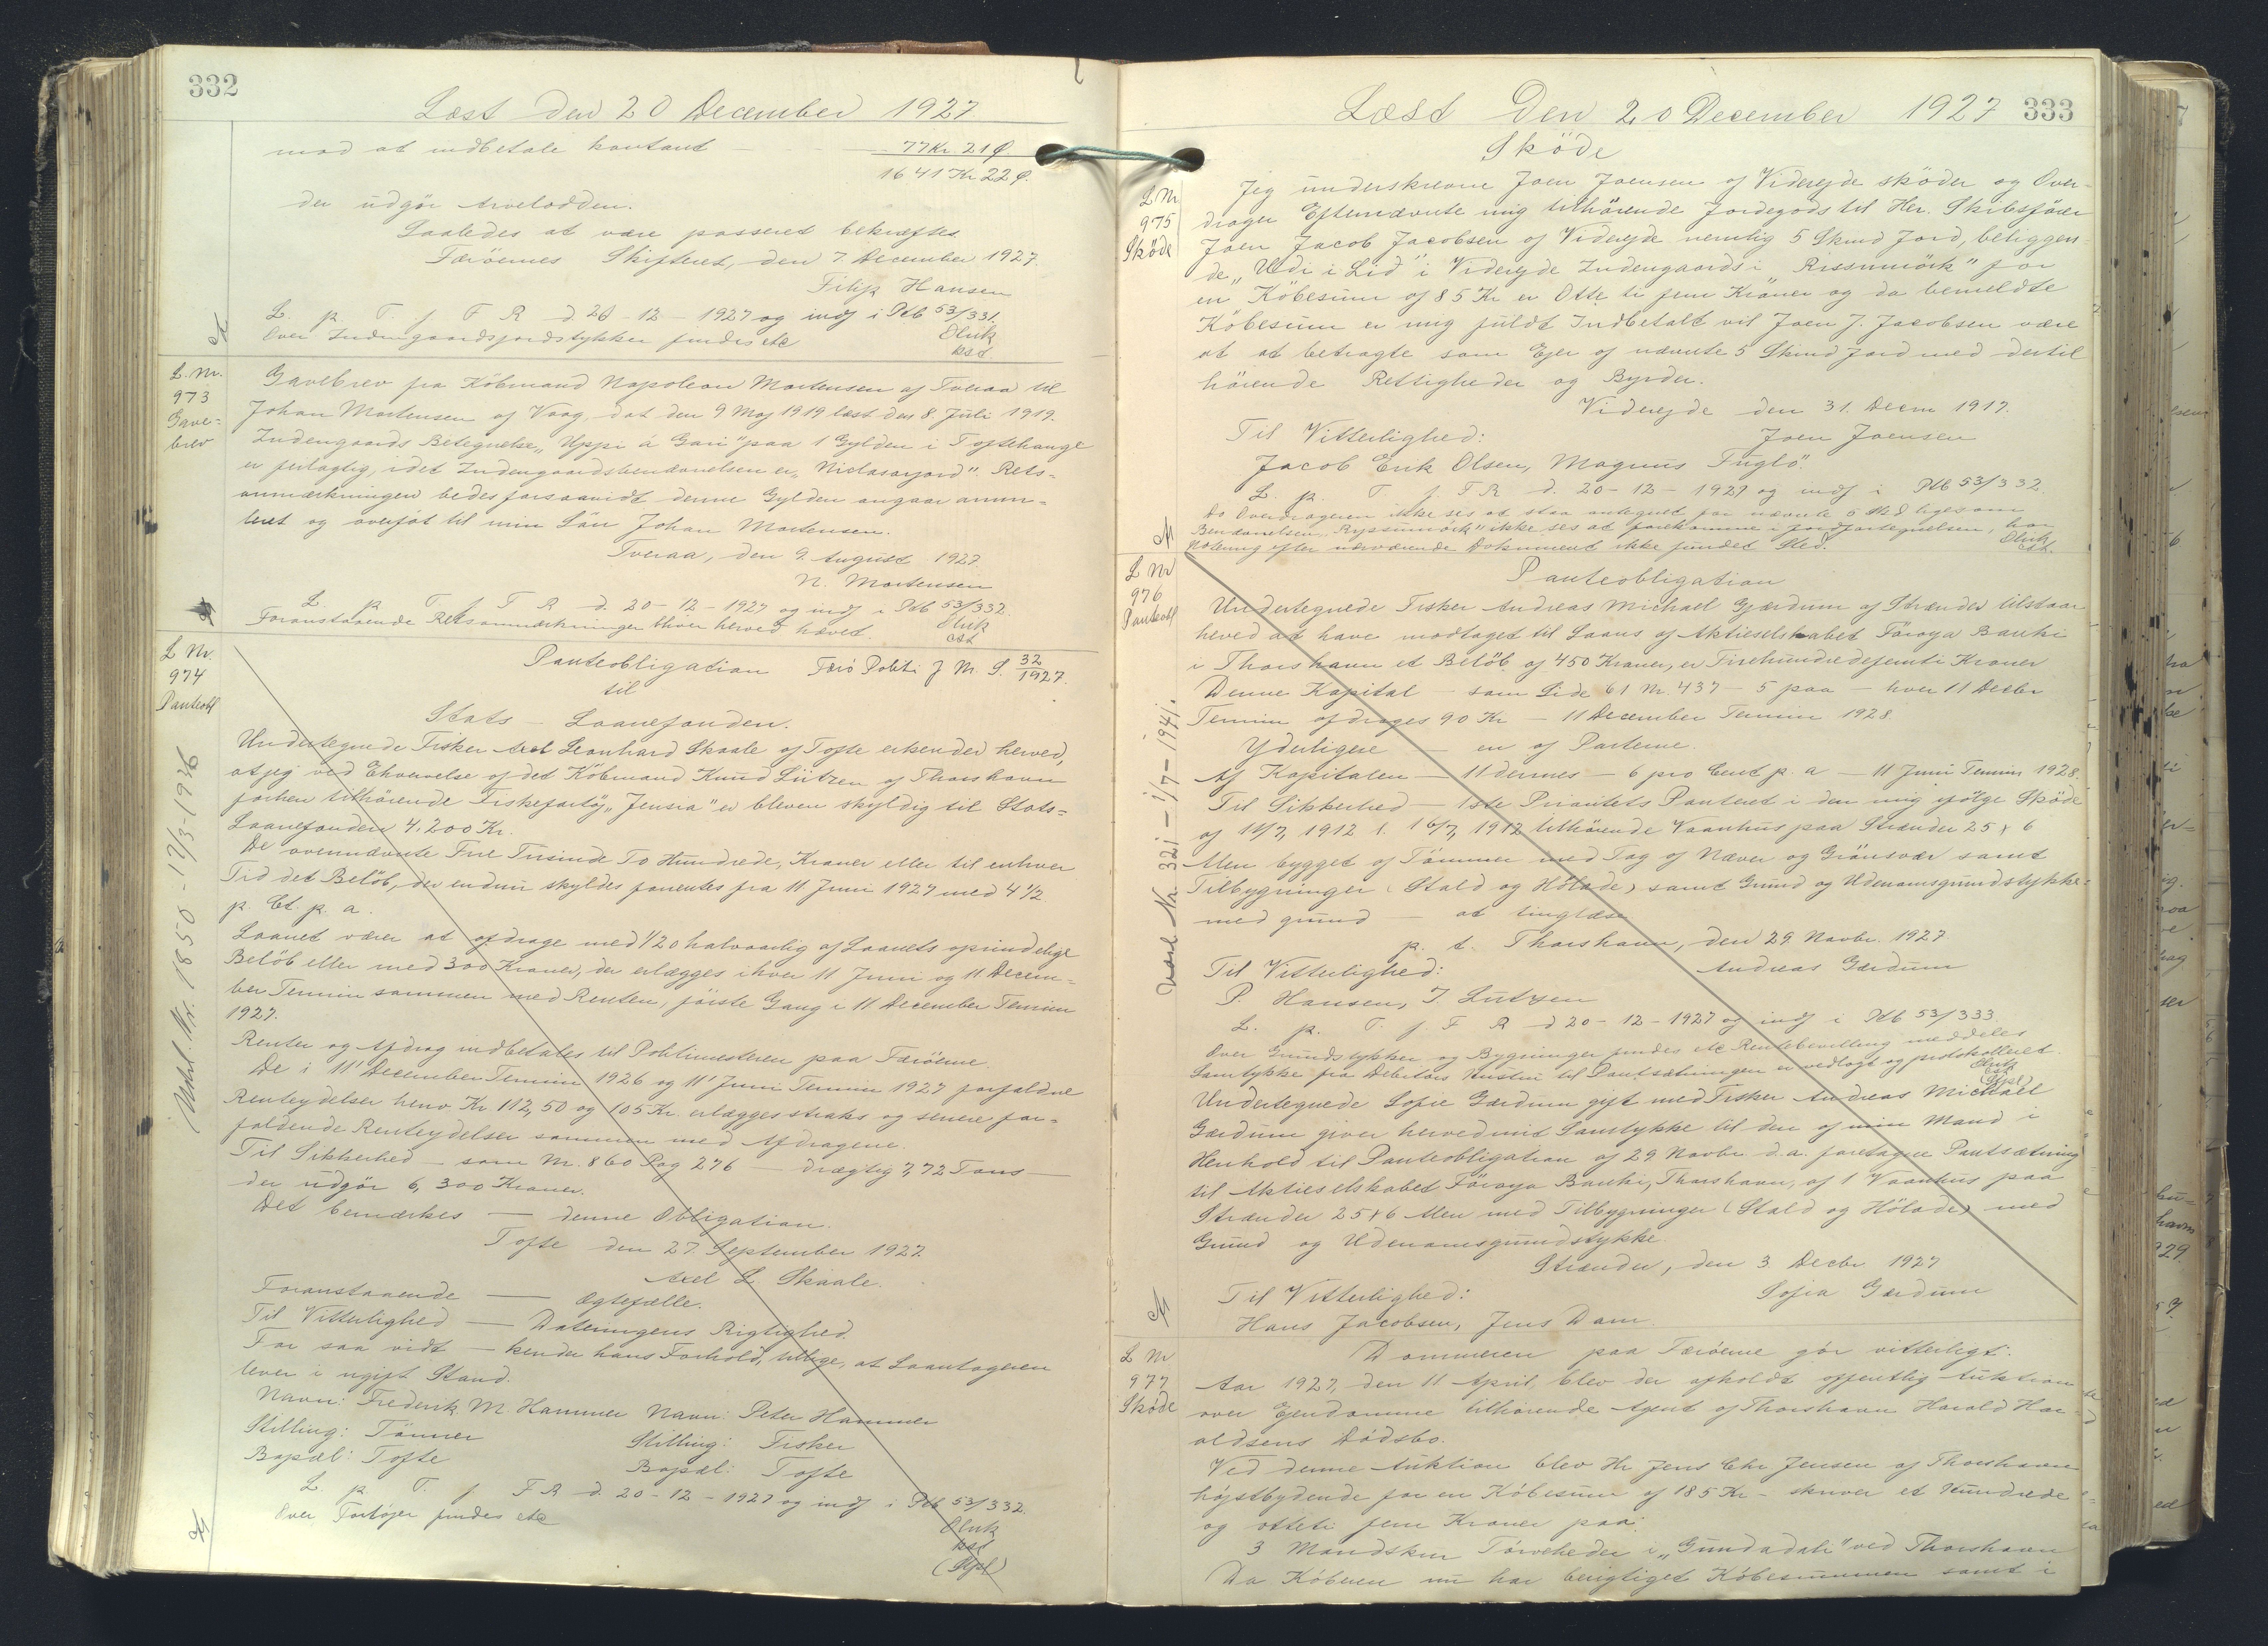 332
Læst den 20 December 1927
mod at indbetale kontant — 77 Kr. 21 Ø
1641 Kr 22 Ø.
der udgör Arvelodden.
Saaledes at være passeret bekræftes
Færöernes Skifteret, den 7. December 1927.
Filip Hansen
L. p. T. f. F R d 20 - 12 - 1927 og indf i Ptb 53/331.
Over Indengaardsjordstykker findes etc
L. Nr.
973
Gave=
brev
Gavebrev fra Köbmand Napoleon Mortensen af Tveraa til
Johan Mortensen af Vaag dat den 9 Maj 1919 læst den 8. Juli 1919.
Indengaards Betegnelse „Uppi á Gari" paa 1 Gylden i Toftehauge
er fejlagtig, idet Indengaardsbenævnelsen er „Niclasarjord". Rets-
anmærkningen bedes forsaavidt denne Gylden angaar annu-
leret og overföt til min Sön Johan Mortensen.
Tveraa, den 9. August 1927.
N. Mortensen
L. p. T. f. F R d. 20 - 12 - 1927 og indf i Ptb 53/332.
Foranstaaende Retsanmærkninger bliver herved hævet.
L Nr.
974
Panteobl
Panteobligation Færö Politi J Nr. S. 32/1927.
til
Stats - Laanefonden.
Undertegnede Fisker Axel Leonhard Skaale af Tofte erkender herved,
at jeg ved Erhvervelse af det Köbmand Knud Lützen af Thorshavn
forhen tilhörende Fiskefartöj „Jensia" er bleven skyldig til Stats=
Laanefonden 4.200 Kr.
De ovennævnte Fire Tusinde To Hundrede, Kroner eller til enhver
Tid det Belöb, der endnu skyldes forrentes fra 11 Juni 1927 med 4 1/2
p. Ct. p. a.
Laanet værer at afdrage med 1/20 halvaarlig af Laanets oprindelige
Belöb eller med 300 Kroner, der erlægges i hver 11 Juni og 11 Decem-
ber Termin sammen med Renten, förste Gang i 11 December Termin
1927.
Renter og Afdrag indbetales til Politimesteren paa Færöerne.
De i 11' December Termin 1926 og 11' Juni Termin 1927 forfaldne
Renteydelser henv Kr 112,50 og 105 Kr. erlægges straks og senere for-
faldende Renteydelser sammen med Afdragene.
Til Sikkerhed — som Nr. 860 Pag 276 — drægtig 7,72 Tons —
der udgör 6,300 Kroner.
Det bemærkes — denne Obligation.
Tofte den 27 September 1927
Axel L. Skaale.
Foranstaaende — Ægtefælle.
Til Vitterlighed — Dateringens Rigtighed.
For saa vidt — kender hans Forhold, tillige, at Laantageren
lever i ugift Stand.
Navn: Frederik M. Hammer Navn: Peter Hammer
Stilling: Tömrer Stilling: Fisker
Bopæl: Tofte Bopæl: Tofte
L. p. T. f. F R d. 20 - 12 - 1927 og indf i Ptb 53/332.
Over Fartöjer findes etc
Læst Den 20 December 1927
333
Sköde
L Nr
975
Sköde
Jeg underskrevne Joen Joensen af Viderejde sköder og Over-
drager Efternævnte mig tilhörende Jordegods til Her. Skibsförer
Joen Jacob Jacobsen af Viderejde nemlig 5 Skind Jord, beliggen
de „Uldi i Lid" i Viderejde Indengaards i „Rissumörk" for
en Köbesum af 85 Kr er Otte ti fem Kröner og da bemeldte
Köbesum er mig fuldt Indbetalt vil Joen J. Jacobsen være
at at betragte som Ejer af nævnte 5 Skind Jord med dertil
hörende Rettigheder og Byrder.
Viderejde den 31. Decm 1917.
Til Vitterlighed: Joen Joensen
Jacob Erik Olsen, Magnus Fuglö.
L. p. T f. F R d. 20 - 12 - 1927 og indf i Ptb 53/332.
Da Overdrageren ikke ses at staa antegnet for nævnte 5 Skd ligesom
Benævnelsen „Ryssumörk" ikke ses at forekomme i Jordfortegnelsen, har
Notering efter nærværende Dokument ikke fundet Sted.
L Nr
976
Panteobl
Panteobligation
Undertegnede Fisker Andreas Michael Gjærdum af Strænder tilstaar
herved at have modtaget til Laans af Aktieselskabet Föroya Banki
i Thorshavn et Belöb af 450 Kroner, er Firehundredefemti Kroner
Denne Kapital — som Side 61 Nr. 437 - 5 paa — hver 11 Decbr
Termin afdrages 90 Kr — 11 December Termin 1928.
Yderligere — en af Parterne.
Af Kapitalen — 11 dennes — 6 pro Cent p. a — 11 Juni Termin 1928.
Til Sikkerhed — 1ste Prioritets Panteret i den mig ifölge Sköde
af 11/7, 1912 l. 16/7, 1912 tilhörende Vaanhus paa Strænder 25 x 6
Alen bygget af Tömmer med Tag af Næver og Grönsvær samt
Tilbygninger (Stald og Hölade) samt Grund og Udenomsgrundstykke
med grund — at tinglæse
p. t. Thorshavn, den 29. Novbr. 1927
Til Vitterlighed: Andreas Gærdum
P. Hansen, J. Lützen
L. p. T. f. F R d 20 - 12 - 1927 og indf i Ptb 53/333.
Over Grundstykker og Bygninger findes etc Rentebevilling meddeles
Samtykke fra Debitors Hustru til Pantsætningen er vedlagt og protokolleret.
Undertegnede Sofie Gærdum gift med Fisker Andreas Michael
Gærdum giver herved mit Samtykke til den af min Mand i
Henhold til Panteobligation af 29 Novbr d.a. foretagne Pantsætning
til Aktieselskabet Föroya Banki, Thorshavn, af 1 Vaanhus paa
Strænder 25 x 6 Alen med Tilbygninger (Stald og Hölade) med
Grund og Udenomsgrundstykke.
Strænder, den 3 Decbr 1927
Til Vitterlighed: Sofia Gærdum
Hans Jacobsen, Jens Dam.
L Nr
977
Sköde
Dommeren paa Færöerne gör vitterligt:
Aar 1927, den 11 April, blev der afholdt offentlig Auktion
over Ejendomme tilhörende Agent af Thorshavn Harald Har
aldsens Dödsbo.
Ved denne Auktion blev Hr Jens Chr Jensen af Thorshavn
höjstbydende for en Köbesum af 185 Kr - skriver et Hundrede
og otteti fem Kroner paa:
3 Mandskur Törveheder i „Gundadali" ved Thorshavn
Da Köberen nu har berigtiget Köbesummen samt i